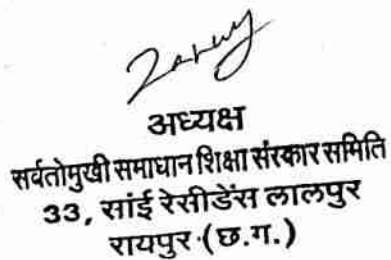 अध्यक्ष
सर्वतोमुखी समाधान शिक्षा संस्कार समिति
33, सांई रेसीडेंस लालपुर
रायपुर (छ.ग.)